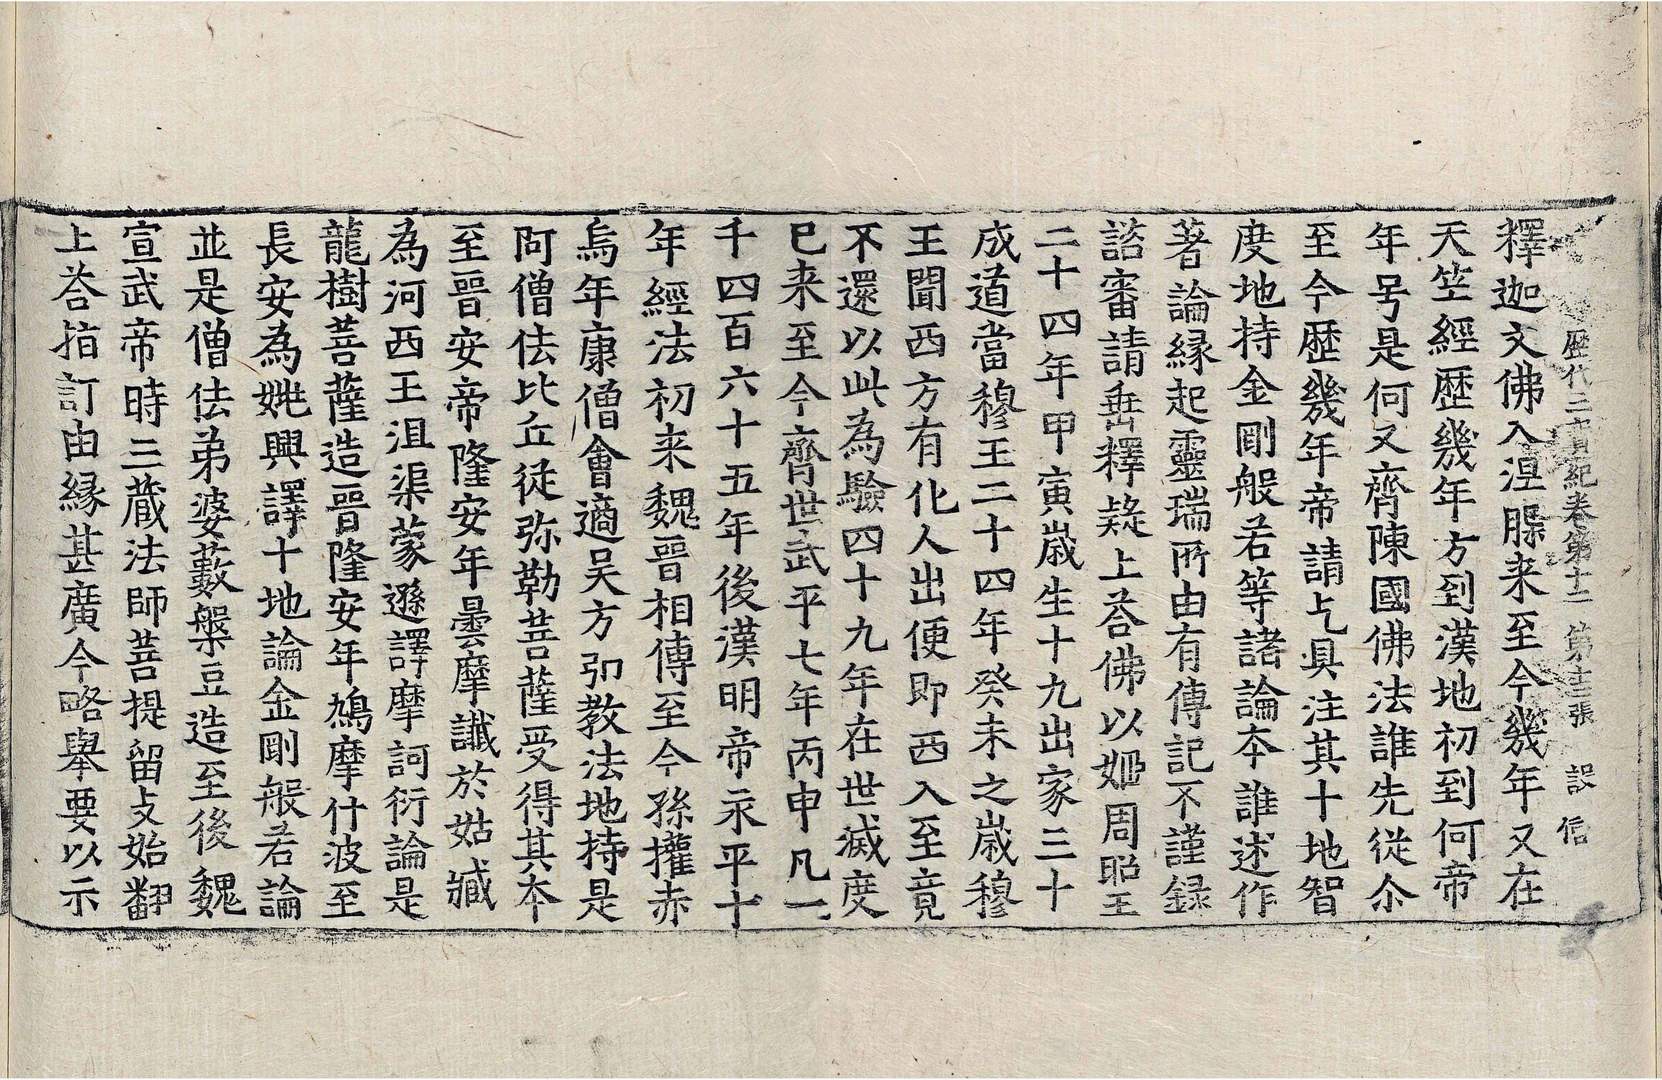 歷代三寶紀卷第十二 第十二張 設 信
釋迦文佛入涅槃来至今幾年又在
天竺經歷幾年方到漢地初到何帝
年号是何又齊陳國佛法誰先從尒
至今歷幾年帝請乞具注其十地智
度地持金剛般若等諸論夲誰述作
著論縁起靈瑞所由有傳記不謹録
諮審請垂釋疑上荅佛以姬周昭王
二十四年甲寅歲生十九出家三十
成道當穆王二十四年癸未之歲穆
王聞西方有化人出便即西入至竟
不還以此為驗四十九年在世滅度
已来至今齊世武平七年丙申凡一
千四百六十五年後漢明帝永平十
年經法初来魏晉相傳至今孫權赤
烏年康僧會適吴方弘教法地持是
阿僧佉比丘従弥勒菩薩受得其夲
至晉安帝隆安年曇摩讖於姑臧
為河西王沮渠蒙遜譯摩訶衍論是
龍樹菩薩造晉隆安年鳩摩什波至
長安為姚興譯十地論金剛般若論
並是僧佉弟婆藪槃豆造至後魏
宣武帝時三蔵法師菩提留支始翻
上荅指訂由縁甚廣今略舉要以示